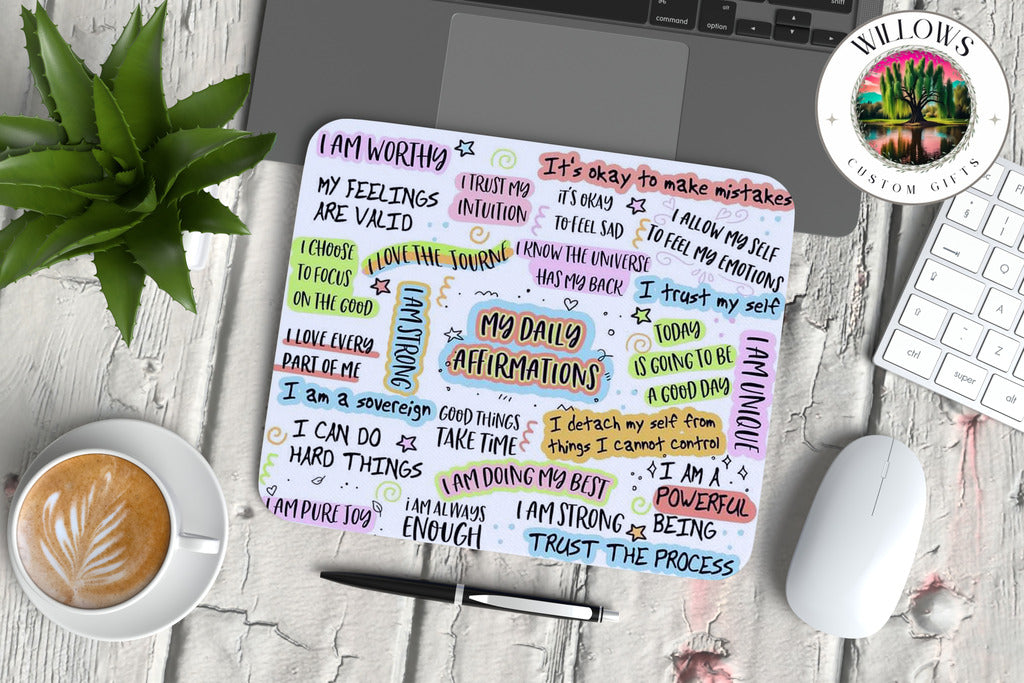 command
option
alt
shift
WILLOWS
CUSTOM GIFTS
I AM WORTHY
It's okay to make mistakes
MY FEELINGS
ARE VALID
I TRUST MY
INTUITION
it's OKAY
TO FEEL SAD
I ALLOW MY SELF
TO FEEL MY EMOTIONS
I CHOOSE
TO FOCUS
ON THE GOOD
I LOVE THE TOURNE
I KNOW THE UNIVERSE
HAS MY BACK
I trust my self
I AM STRONG
MY DAILY
AFFIRMATIONS
TODAY
IS GOING TO BE
A GOOD DAY
I AM UNIQUE
I LOVE EVERY
PART OF ME
I am a sovereign
GOOD THINGS
TAKE TIME
I detach my self from
things I cannot control
I CAN DO
HARD THINGS
I AM DOING MY BEST
I AM A
POWERFUL
BEING
I AM PURE JOY
i AM ALWAYS
ENOUGH
I AM STRONG
TRUST THE PROCESS
ctrl
super
alt
Z
A
Q